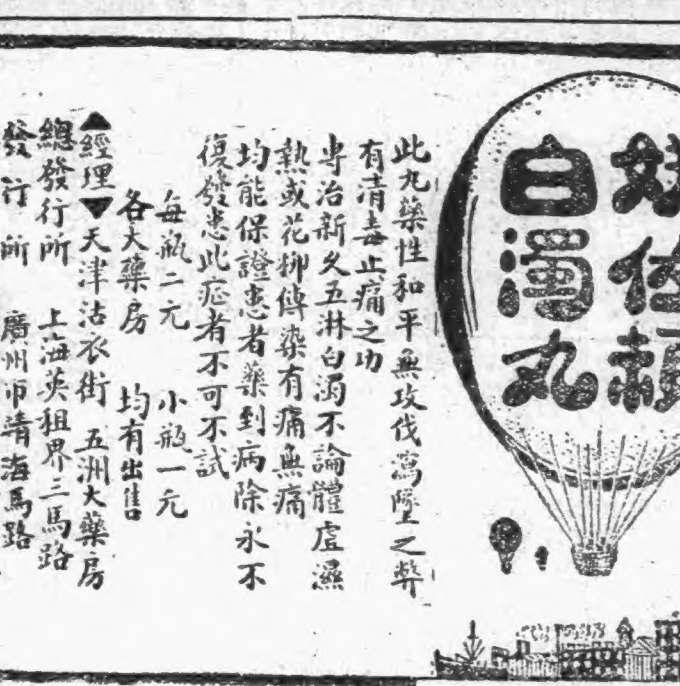 妙佐賴
白濁丸
此丸藥性和平無攻伐瀉墜之弊
有清毒止痛之功
專治新久五淋白濁不論體虛濕
熱或花柳傳染有痛無痛
均能保證患者藥到病除永不
復發患此症者不可不試
每瓶二元 小瓶一元
各大藥房 均有出售
▲經理▼天津沽衣街 五洲大藥房
總發行所 上海英租界三馬路
發行所 廣州市靖海馬路